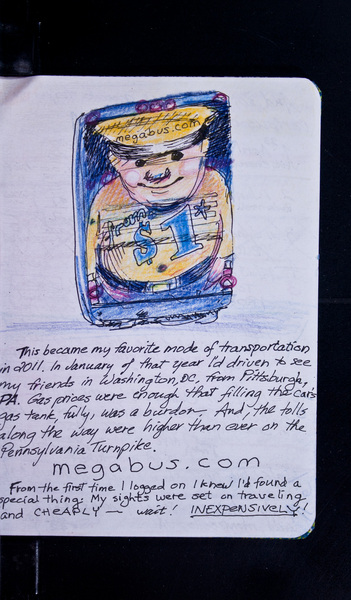 megabus.com
from
$1*
This became my favorite mode of transportation
in 2011. In January of that year I'd driven to see
my friends in Washington, DC, from Pittsburgh,
PA. Gas prices were enough that filling the car's
gas tank, fully, was a burden. And, the tolls
along the way were higher than ever on the
Pennsylvania Turnpike.
megabus.com
From the first time I logged on I knew I'd found a
special thing. My sights were set on traveling
and CHEAPLY — wait! INEXPENSIVELY!